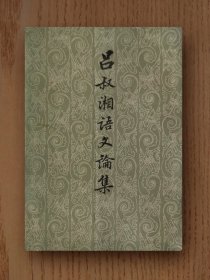 吕叔湘语文論集